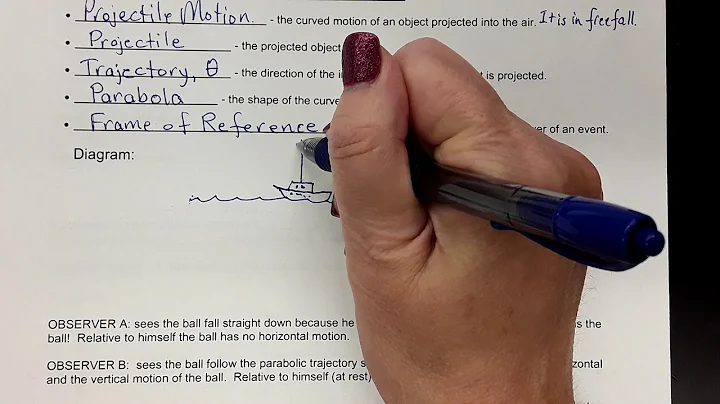 • Projectile Motion - the curved motion of an object projected into the air. It is in freefall.
• Projectile - the projected object
• Trajectory, θ - the direction of the is projected.
• Parabola - the shape of the curve
• Frame of Reference of an event.
Diagram:
OBSERVER A: sees the ball fall straight down because he is the
ball! Relative to himself the ball has no horizontal motion.
OBSERVER B: sees the ball follow the parabolic trajectory
and the vertical motion of the ball. Relative to himself (at rest)